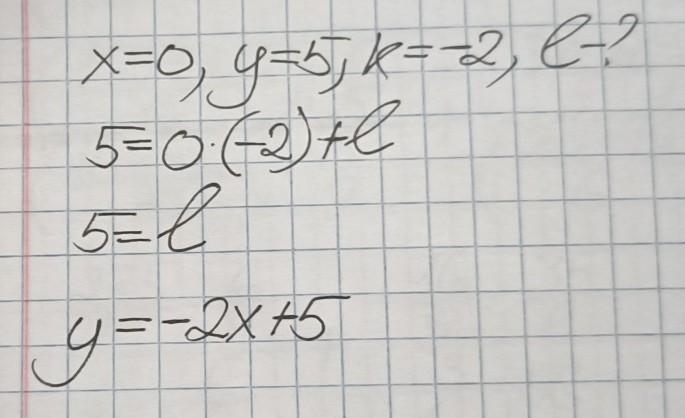 x=0, y=5, k=-2, l-?
5=0·(-2)+l
5=l
y=-2x+5